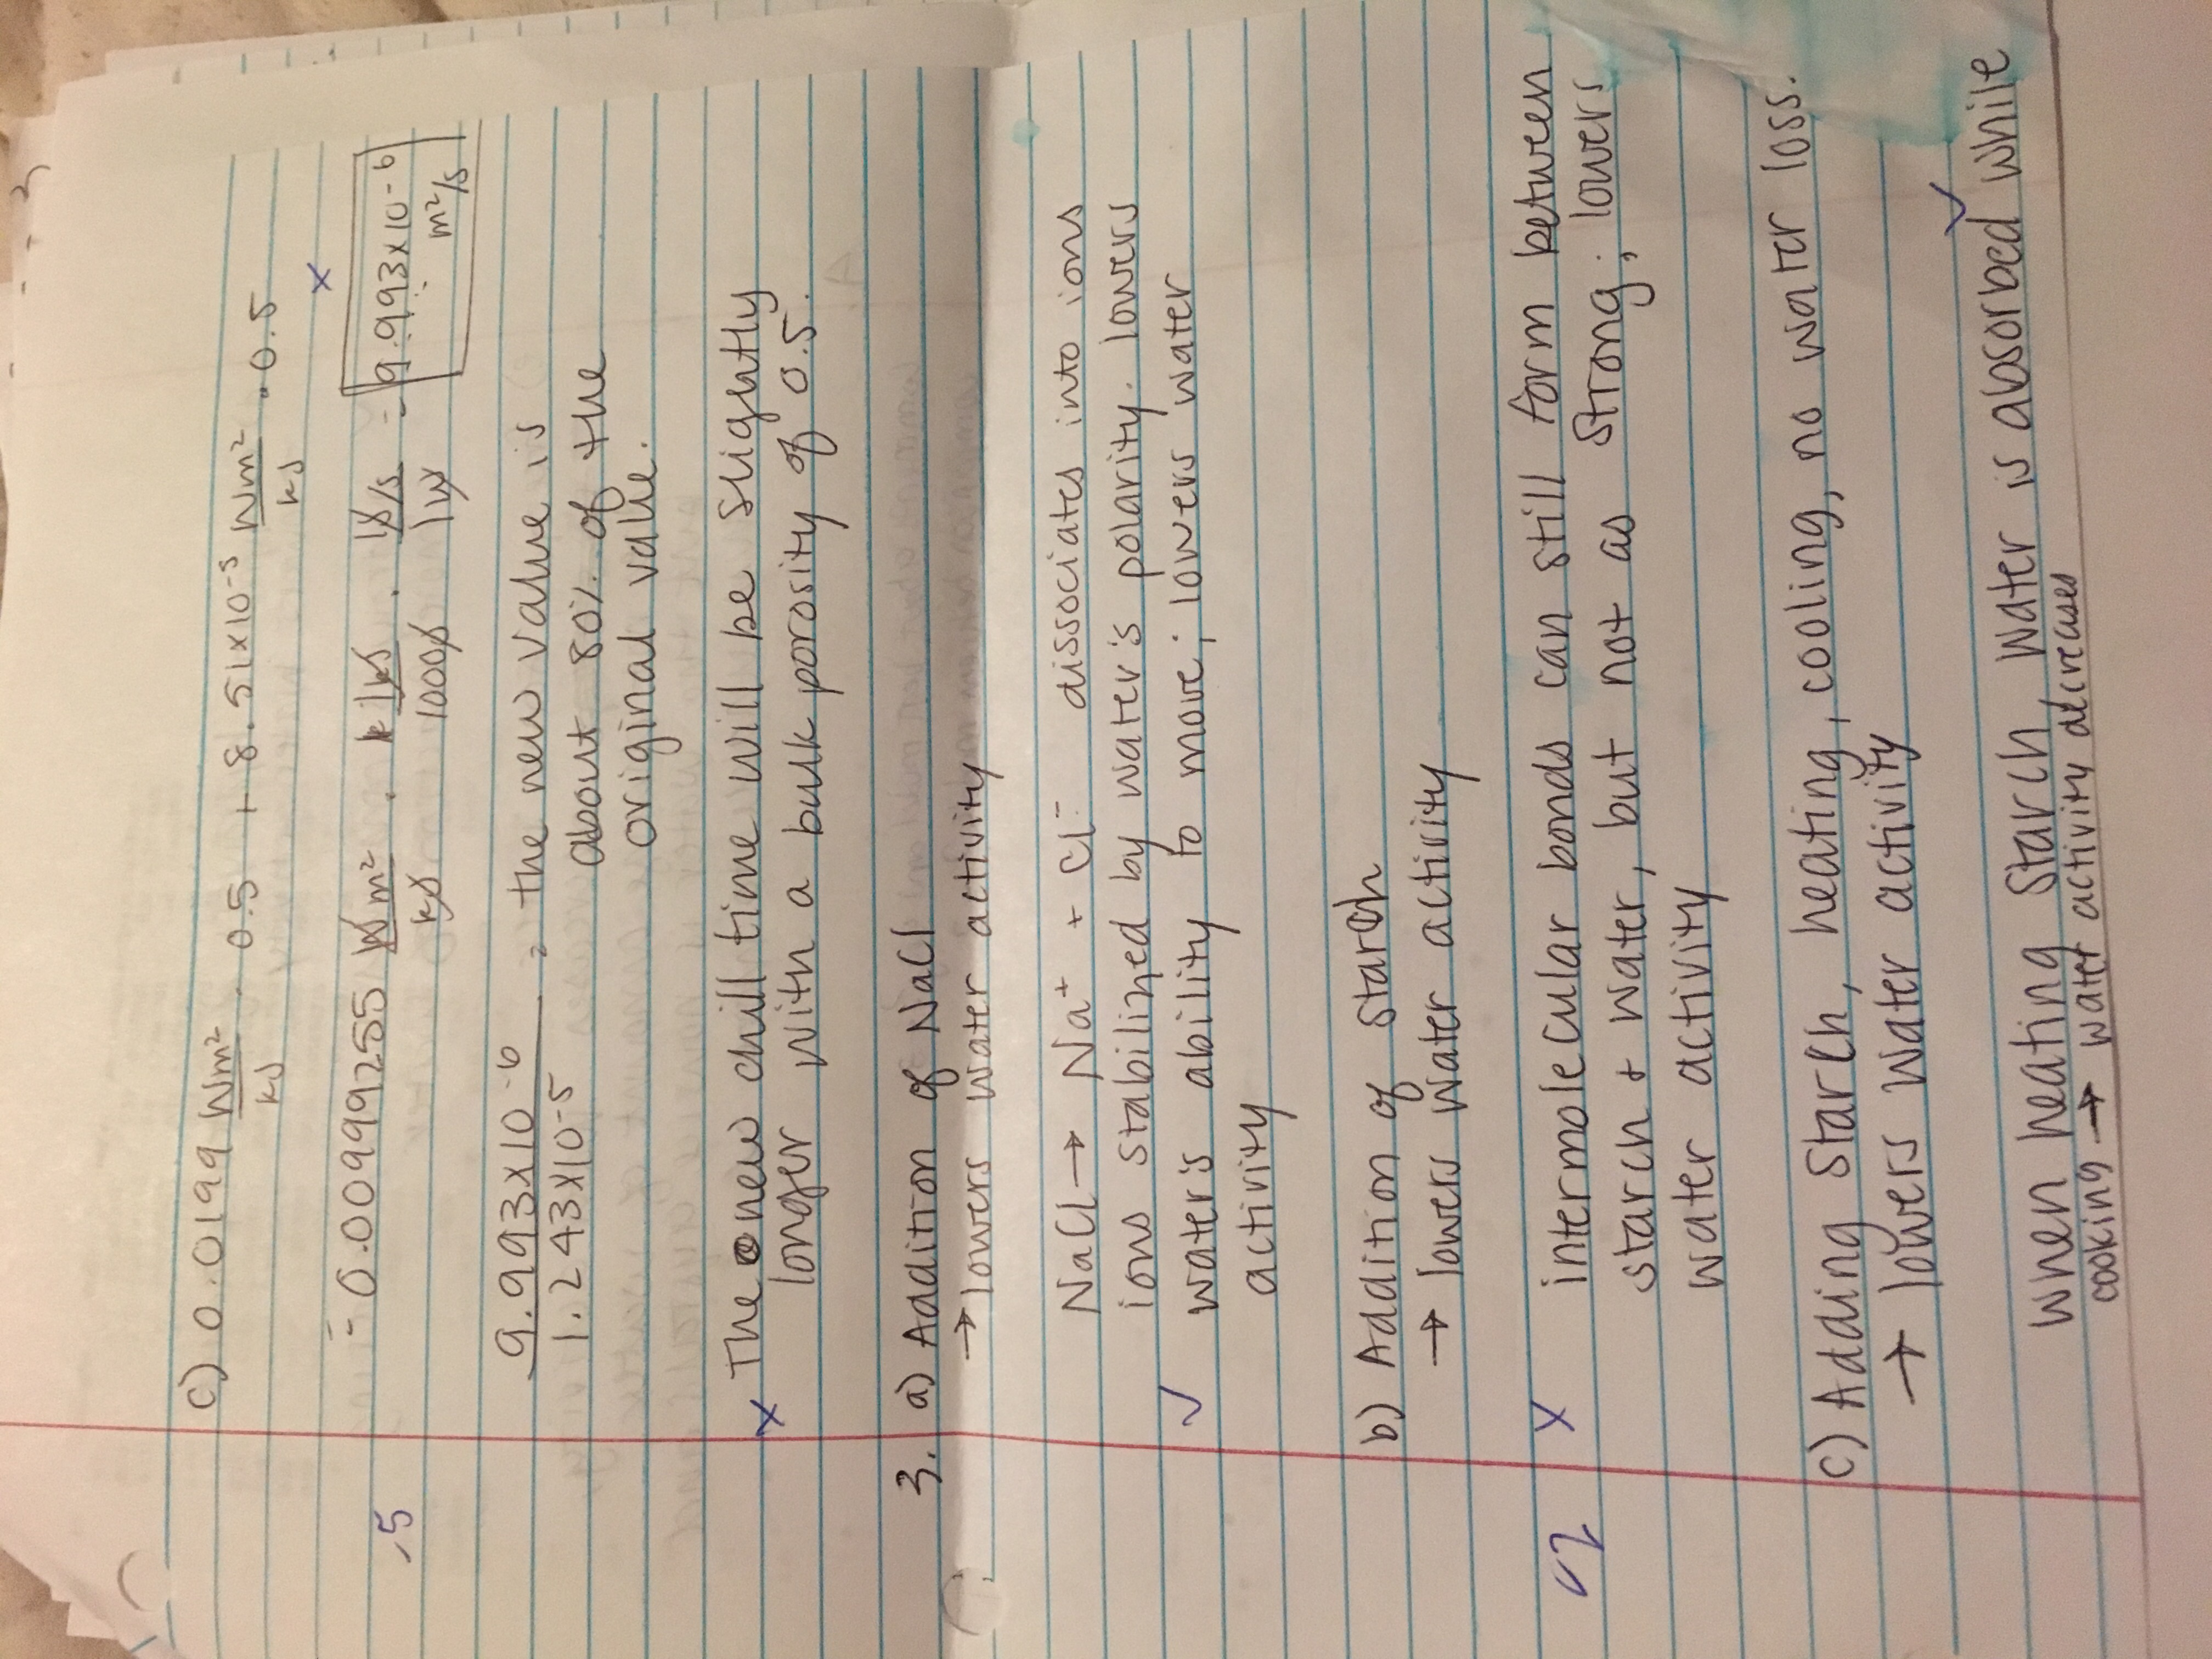 c) 0.0199 Wm²/kJ · 0.5 + 8.51x10⁻⁵ Wm²/kJ · 0.5
x
= 0.00999255 Wm²/kJ · 1kJ/1000J · 1J/s/1W = 9.993x10⁻⁶ m²/s
-5
9.993x10⁻⁶/1.243x10⁻⁵ = the new value is
about 80% of the
original value.
x The new chill time will be slightly
longer with a bulk porosity of 0.5.
3. a) Addition of NaCl
→ lowers water activity
NaCl → Na⁺ + Cl⁻ dissociates into ions
ions stabilized by water's polarity. lowers
✓ water's ability to move; lowers water
activity
b) Addition of starch
→ lowers water activity
-2 x intermolecular bonds can still form between
starch + water, but not as strong; lowers
water activity
c) Adding starch, heating, cooling, no water loss.
→ lowers water activity
✓
when heating starch, water is absorbed while
cooking → water activity decreases